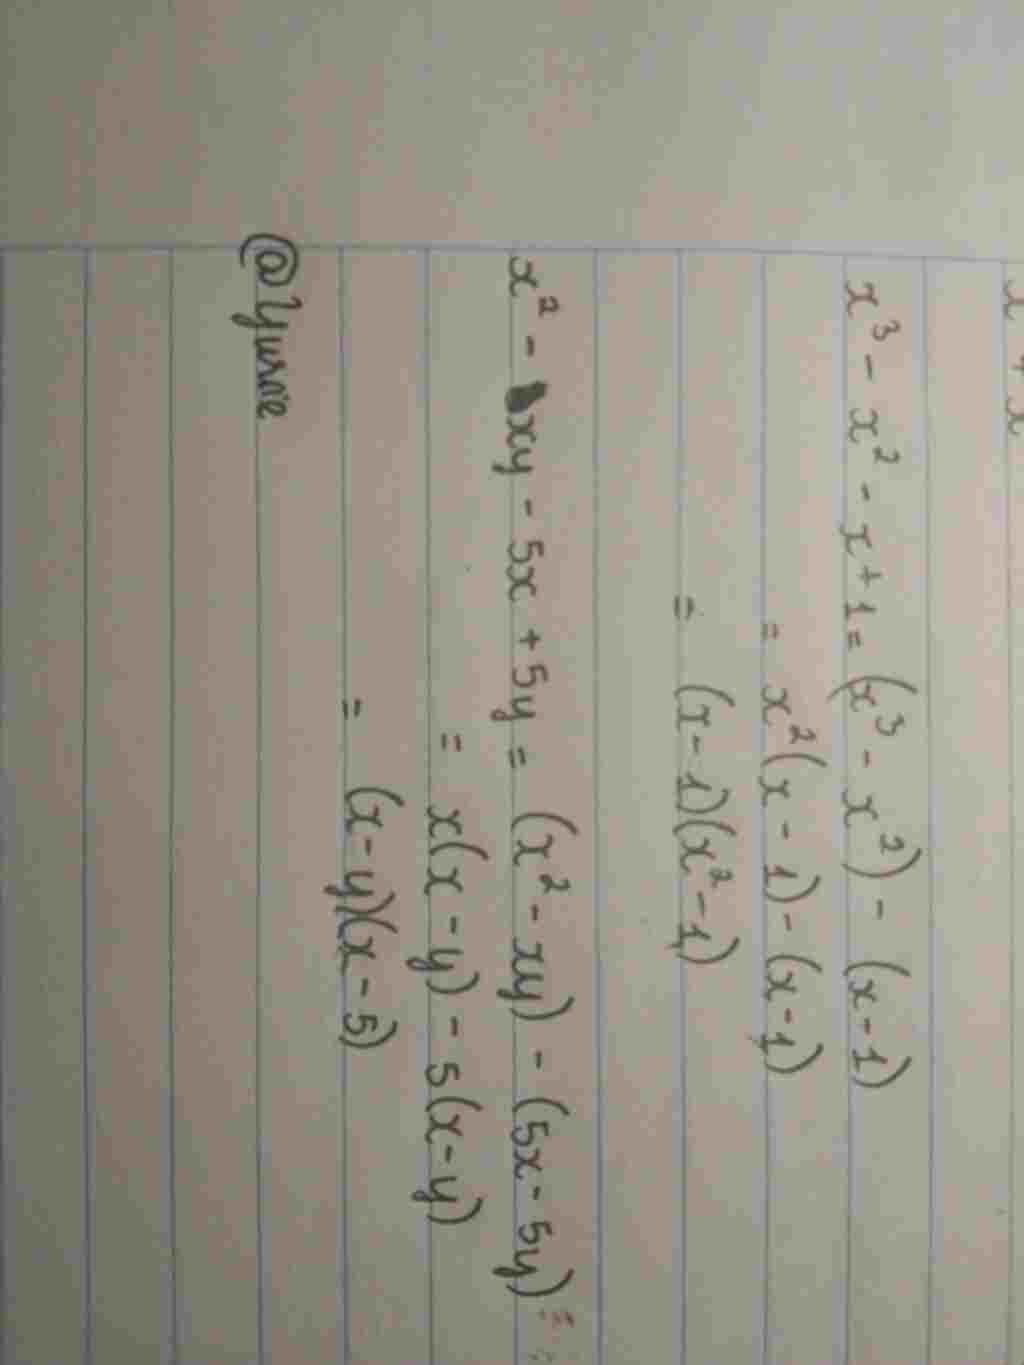 x³ - x² - x + 1 = (x³ - x²) - (x - 1)
= x²(x - 1) - (x - 1)
= (x - 1)(x² - 1)
x² - xy - 5x + 5y = (x² - xy) - (5x - 5y)
= x(x - y) - 5(x - y)
= (x - y)(x - 5)
@Yurne